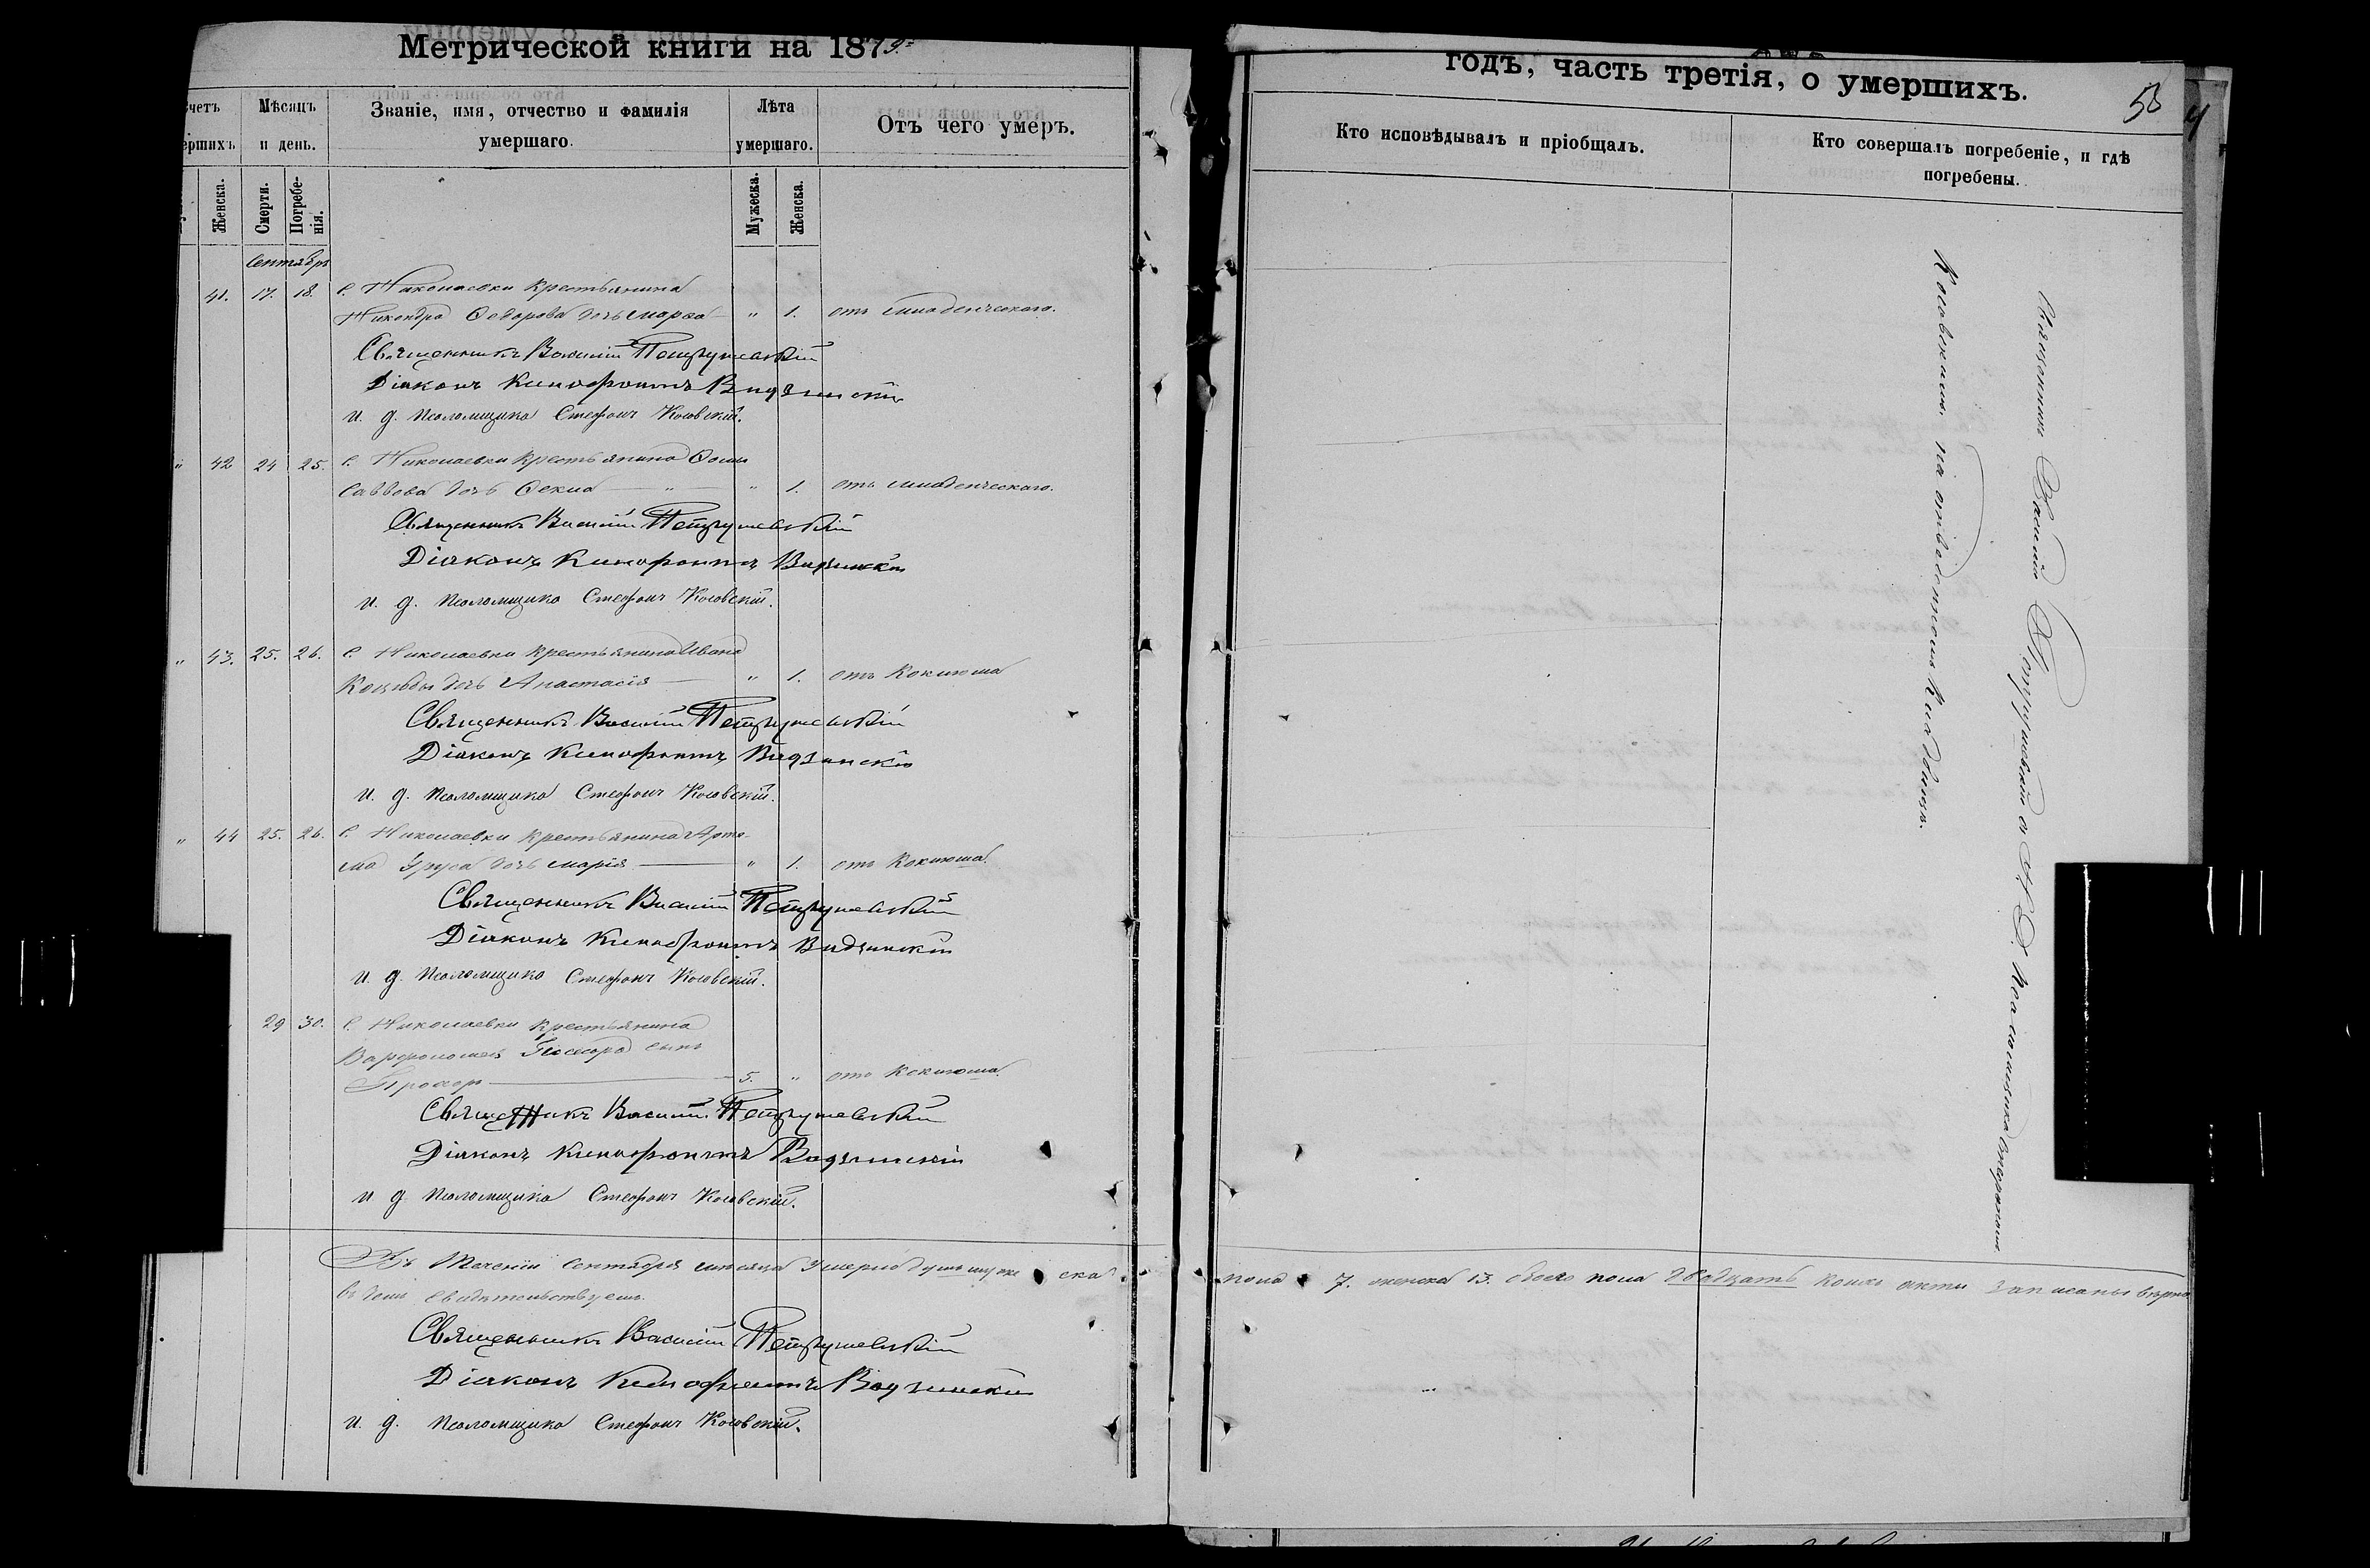 Метрической книги на 1879.
Счетъ умершихъ
Мѣсяцъ и день.
Званіе, имя, отчество и фамилія умершаго.
Лѣта умершаго.
Отъ чего умеръ.
Женска.
Смерти.
Погребенія.
Мужеска.
Женска.
Сентябрь
41. 17. 18. С. Николаевки крестьянина
Никандра Федорова дочь Марѳа " 1. отъ младенческаго.
Священникъ Василій Петрушевскій
Діаконъ Ксенофонтъ
и. д. Псаломщика Стефанъ Косовскій.
" 42 24 25. С. Николаевки крестьянина Ѳомы
Саввова дочь Ѳекла " " 1. отъ младенческаго.
Священникъ Василій Петрушевскій
Діаконъ Ксенофонтъ
и. д. Псаломщика Стефанъ Косовскій.
" 43. 25. 26. С. Николаевки крестьянина Ивана
дочь Анастасія " 1. отъ Коклюша
Священникъ Василій Петрушевскій
Діаконъ Ксенофонтъ
и. д. Псаломщика Стефанъ Косовскій.
" 44 25. 26. С. Николаевки крестьянина Арте-
ма дочь Марія " 1. отъ Коклюша.
Священникъ Василій Петрушевскій
Діаконъ Ксенофонтъ
и. д. Псаломщика Стефанъ Косовскій.
29 30. С. Николаевки крестьянина
Варфоломея сынъ
Прохоръ 5. " отъ Коклюша.
Священникъ Василій Петрушевскій
Діаконъ Ксенофонтъ
и. д. Псаломщика Стефанъ Косовскій.
Въ теченіи Сентября мѣсяца умерло душъ мужеска
въ томъ свидѣтельствуемъ.
Священникъ Василій Петрушевскій
Діаконъ Ксенофонтъ
и. д. Псаломщика Стефанъ Косовскій.
годъ, часть третія, о умершихъ.
Кто исповѣдывалъ и пріобщалъ.
Кто совершалъ погребеніе, и гдѣ погребены.
Священникъ Василій Петрушевскій съ И. Д. Псаломщика Стефаномъ
Косовскимъ на кладбищѣ.
пола 7. женска 13. обоего пола двадцать коихъ акты записаны вѣрно